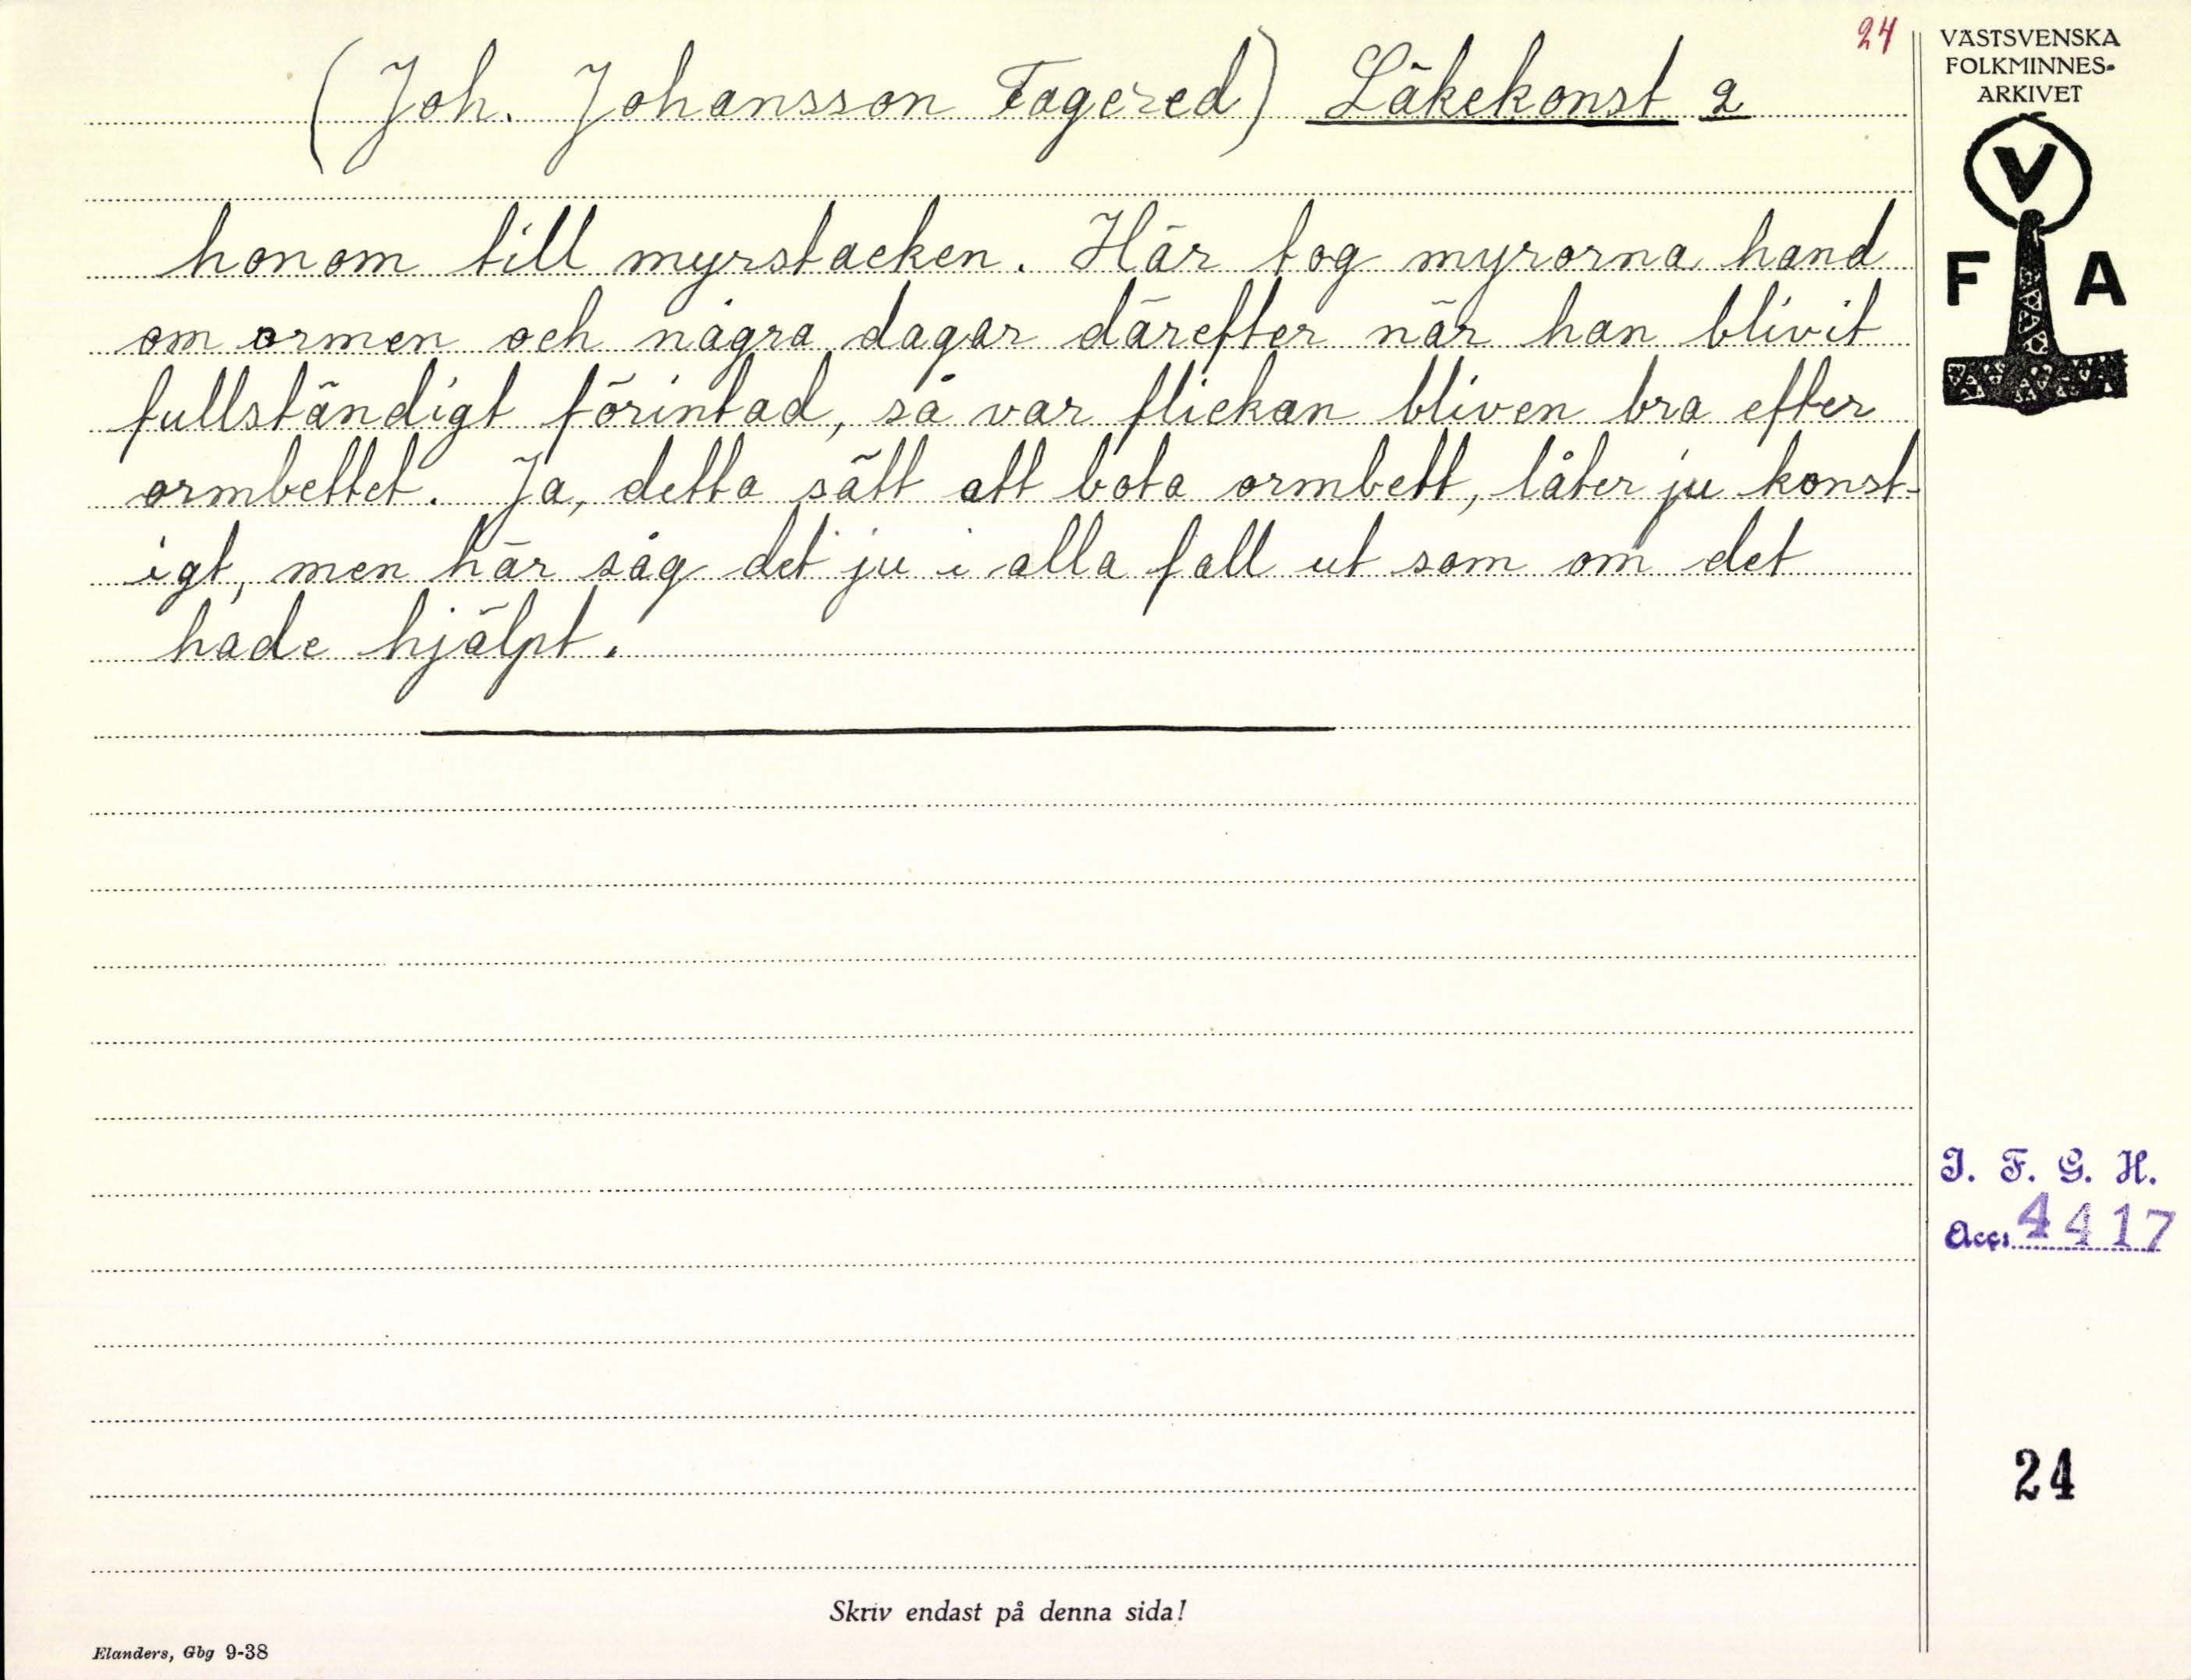 24
(Joh. Johansson Fagered) Läkekonst 2
honom till myrstacken. Här tog myrorna hand
om ormen och några dagar därefter när han blivit
fullständigt förintad, så var flickan bliven bra efter
ormbettet. Ja, detta sätt att bota ormbett, låter ju konst-
igt, men här såg det ju i alla fall ut som om det
hade hjälpt.
VÄSTSVENSKA
FOLKMINNES-
ARKIVET
V
F A
I. F. G. H.
Acc: 4417
24
Skriv endast på denna sida!
Elanders, Gbg 9-38